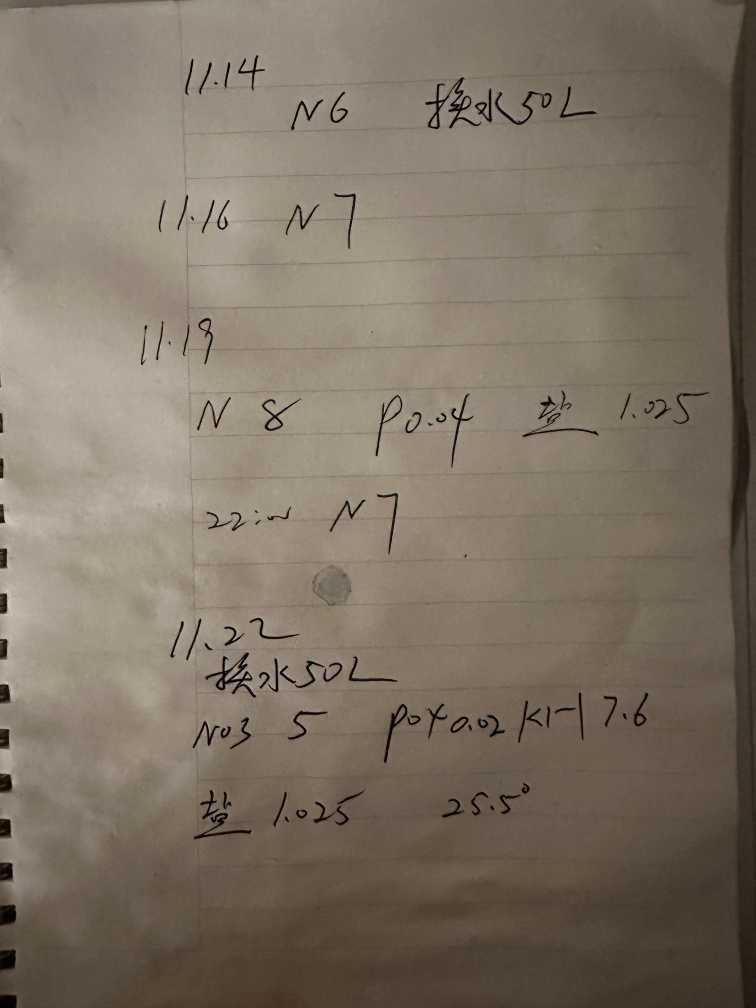 11.14
N6 换水50L
11.16 N7
11.19
N 8 P0.04 盐 1.025
22:00 N7
11.22
换水50L
NO3 5 PO4 0.02 KH 7.6
盐 1.025 25.5°